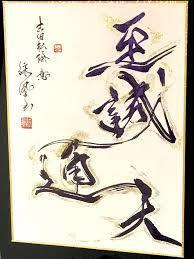 至誠天
通
吉田松陰